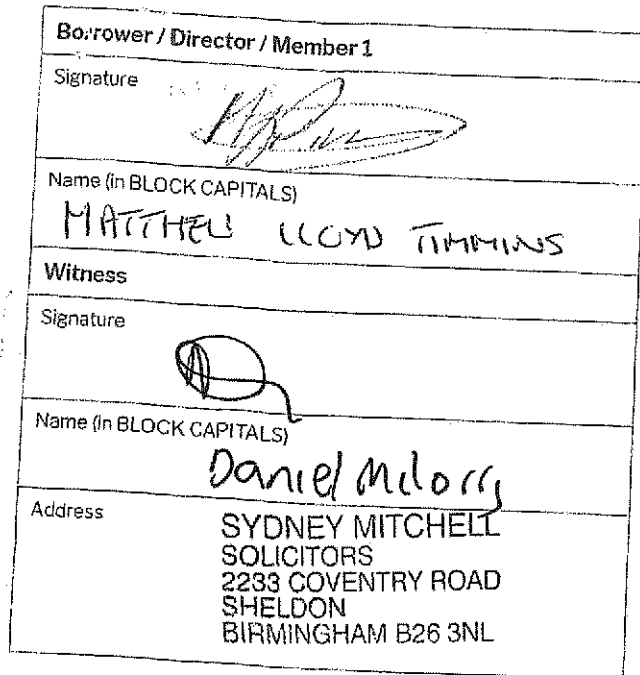 Borrower / Director / Member 1
Signature
Name (in BLOCK CAPITALS)
MATTHEW LLOYD TIMMINS
Witness
Signature
Name (in BLOCK CAPITALS)
Daniel
Address
SYDNEY MITCHELL
SOLICITORS
2233 COVENTRY ROAD
SHELDON
BIRMINGHAM B26 3NL